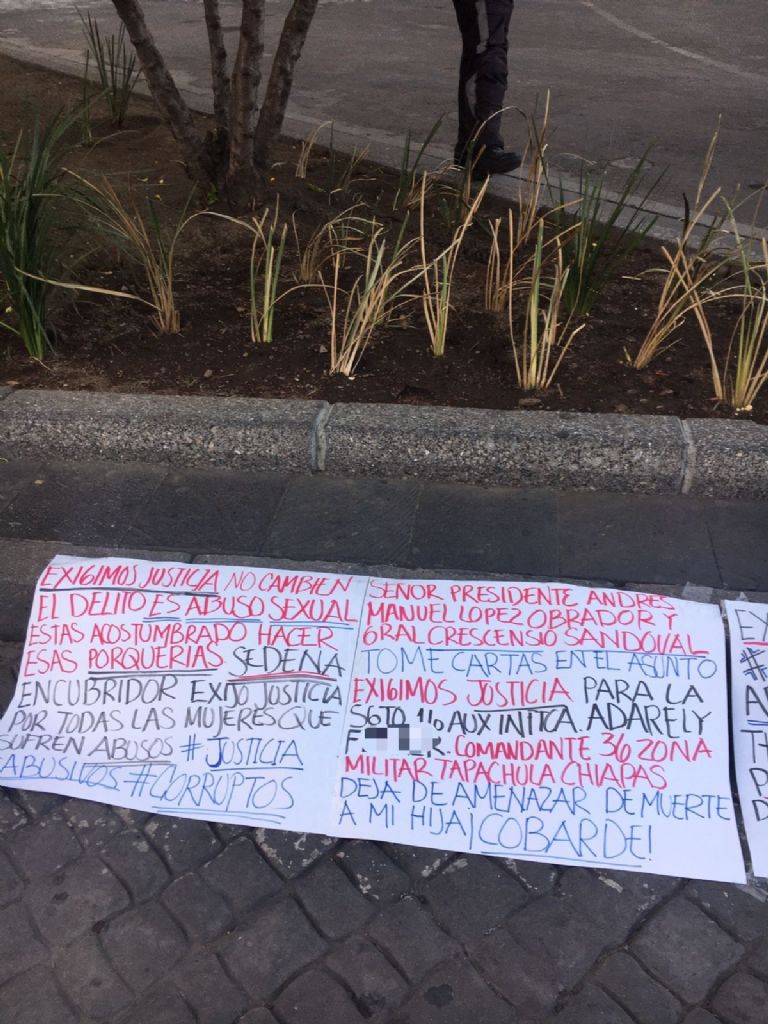 EXIGIMOS JUSTICIA NO CAMBIEN
EL DELITO ES ABUSO SEXUAL
ESTAS ACOSTUMBRADO HACER
ESAS PORQUERIAS SEDENA
ENCUBRIDOR EXIJO JUSTICIA
POR TODAS LAS MUJERES QUE
SUFREN ABUSOS # JUSTICIA
ABUSIVOS # CORRUPTOS
SEÑOR PRESIDENTE ANDRES
MANUEL LOPEZ OBRADOR Y
GRAL CRESCENSIO SANDOVAL
TOME CARTAS EN EL ASUNTO
EXIGIMOS JUSTICIA PARA LA
SGTO 1/o AUX INTCA. ADARELY
COMANDANTE 36 ZONA
MILITAR TAPACHULA CHIAPAS
DEJA DE AMENAZAR DE MUERTE
A MI HIJA ¡COBARDE!